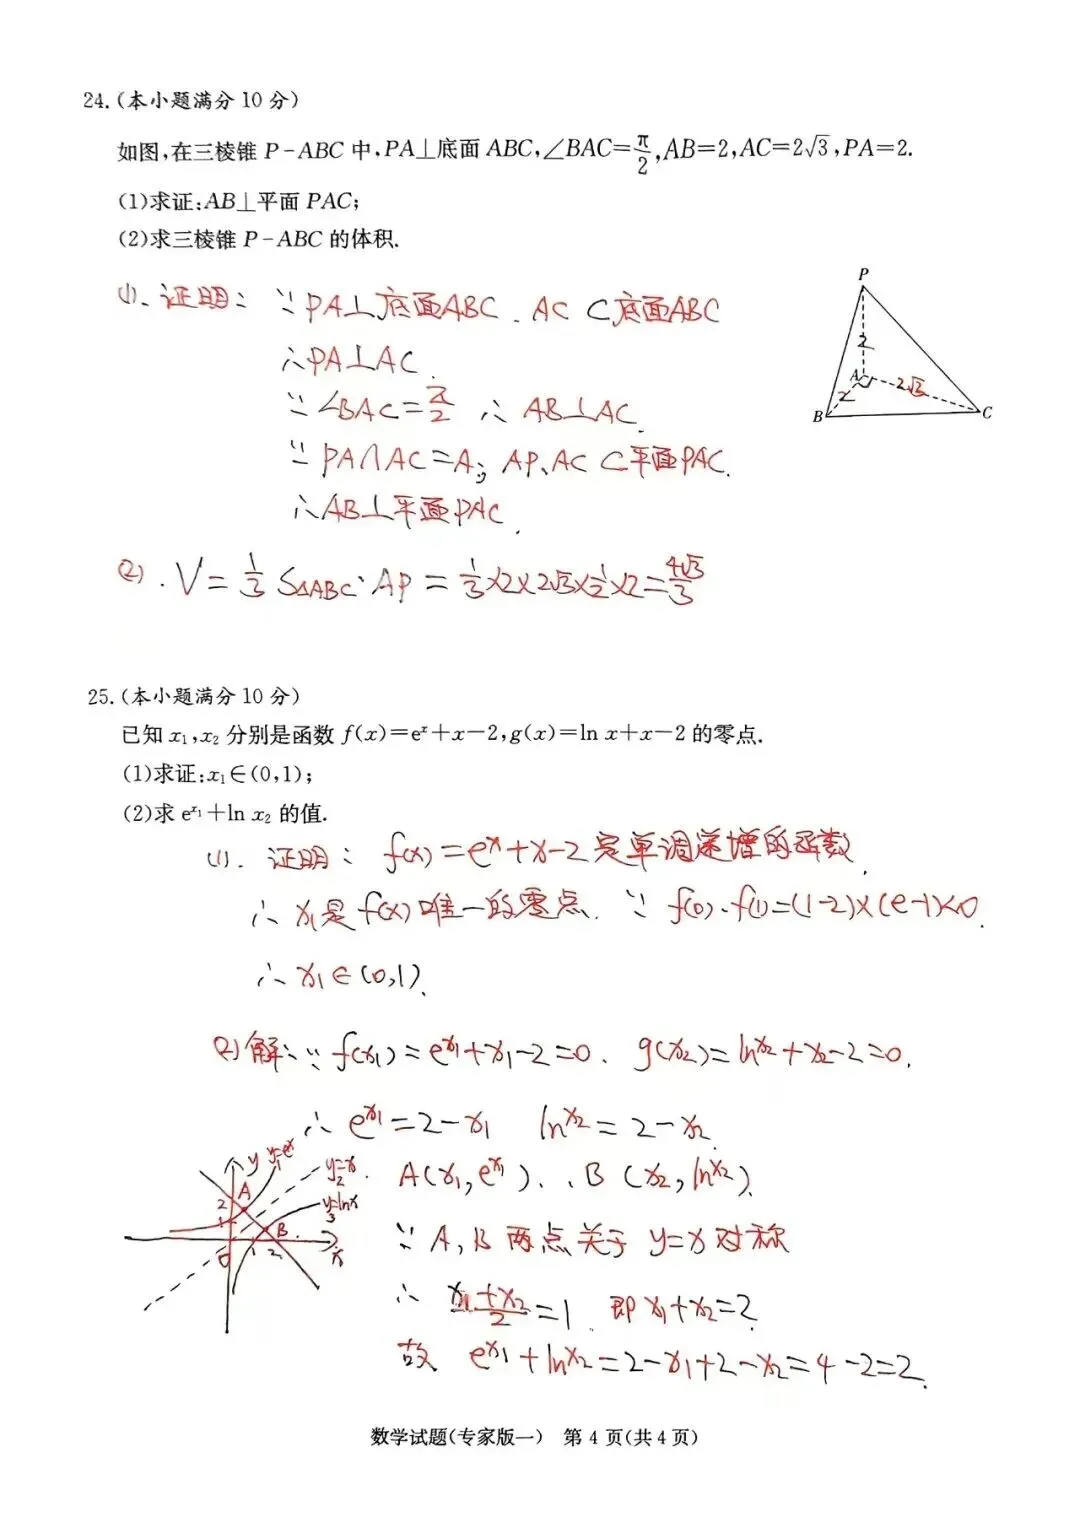 24.(本小题满分10分)
如图,在三棱锥 P-ABC 中,PA⊥底面 ABC,∠BAC=π/2,AB=2,AC=2√3,PA=2.
(1)求证:AB⊥平面 PAC;
(2)求三棱锥 P-ABC 的体积.
(1). 证明: ∵PA⊥底面ABC. AC⊂底面ABC
∴PA⊥AC.
∵∠BAC=π/2 ∴ AB⊥AC.
∵PA∩AC=A; AP、AC⊂平面PAC.
∴AB⊥平面PAC.
P
2
A
2
2√3
B
C
(2). V=1/3 S△ABC·AP=1/3×2×2√3×1/2×2=4√3/3
25.(本小题满分10分)
已知 x₁,x₂ 分别是函数 f(x)=eˣ+x-2,g(x)=ln x+x-2 的零点.
(1)求证:x₁∈(0,1);
(2)求 e^x₁+ln x₂ 的值.
(1). 证明: f(x)=eˣ+x-2是单调递增的函数.
∴ x₁是f(x)唯一的零点. ∵ f(0)·f(1)=(1-2)×(e-1)<0.
∴ x₁∈(0,1).
(2)解:∵ f(x₁)=e^x₁+x₁-2=0. g(x₂)=ln x₂+x₂-2=0.
∴ e^x₁=2-x₁ ln x₂=2-x₂.
A(x₁,e^x₁). B(x₂,ln x₂).
∵ A,B两点关于 y=x对称
∴ x₁+x₂/2=1. 即x₁+x₂=2.
故 e^x₁+ln x₂=2-x₁+2-x₂=4-2=2.
y
y₁=eˣ
y₂=x
2
A
1
y₃=lnx
B
O
1
2
x
数学试题(专家版一) 第4页(共4页)